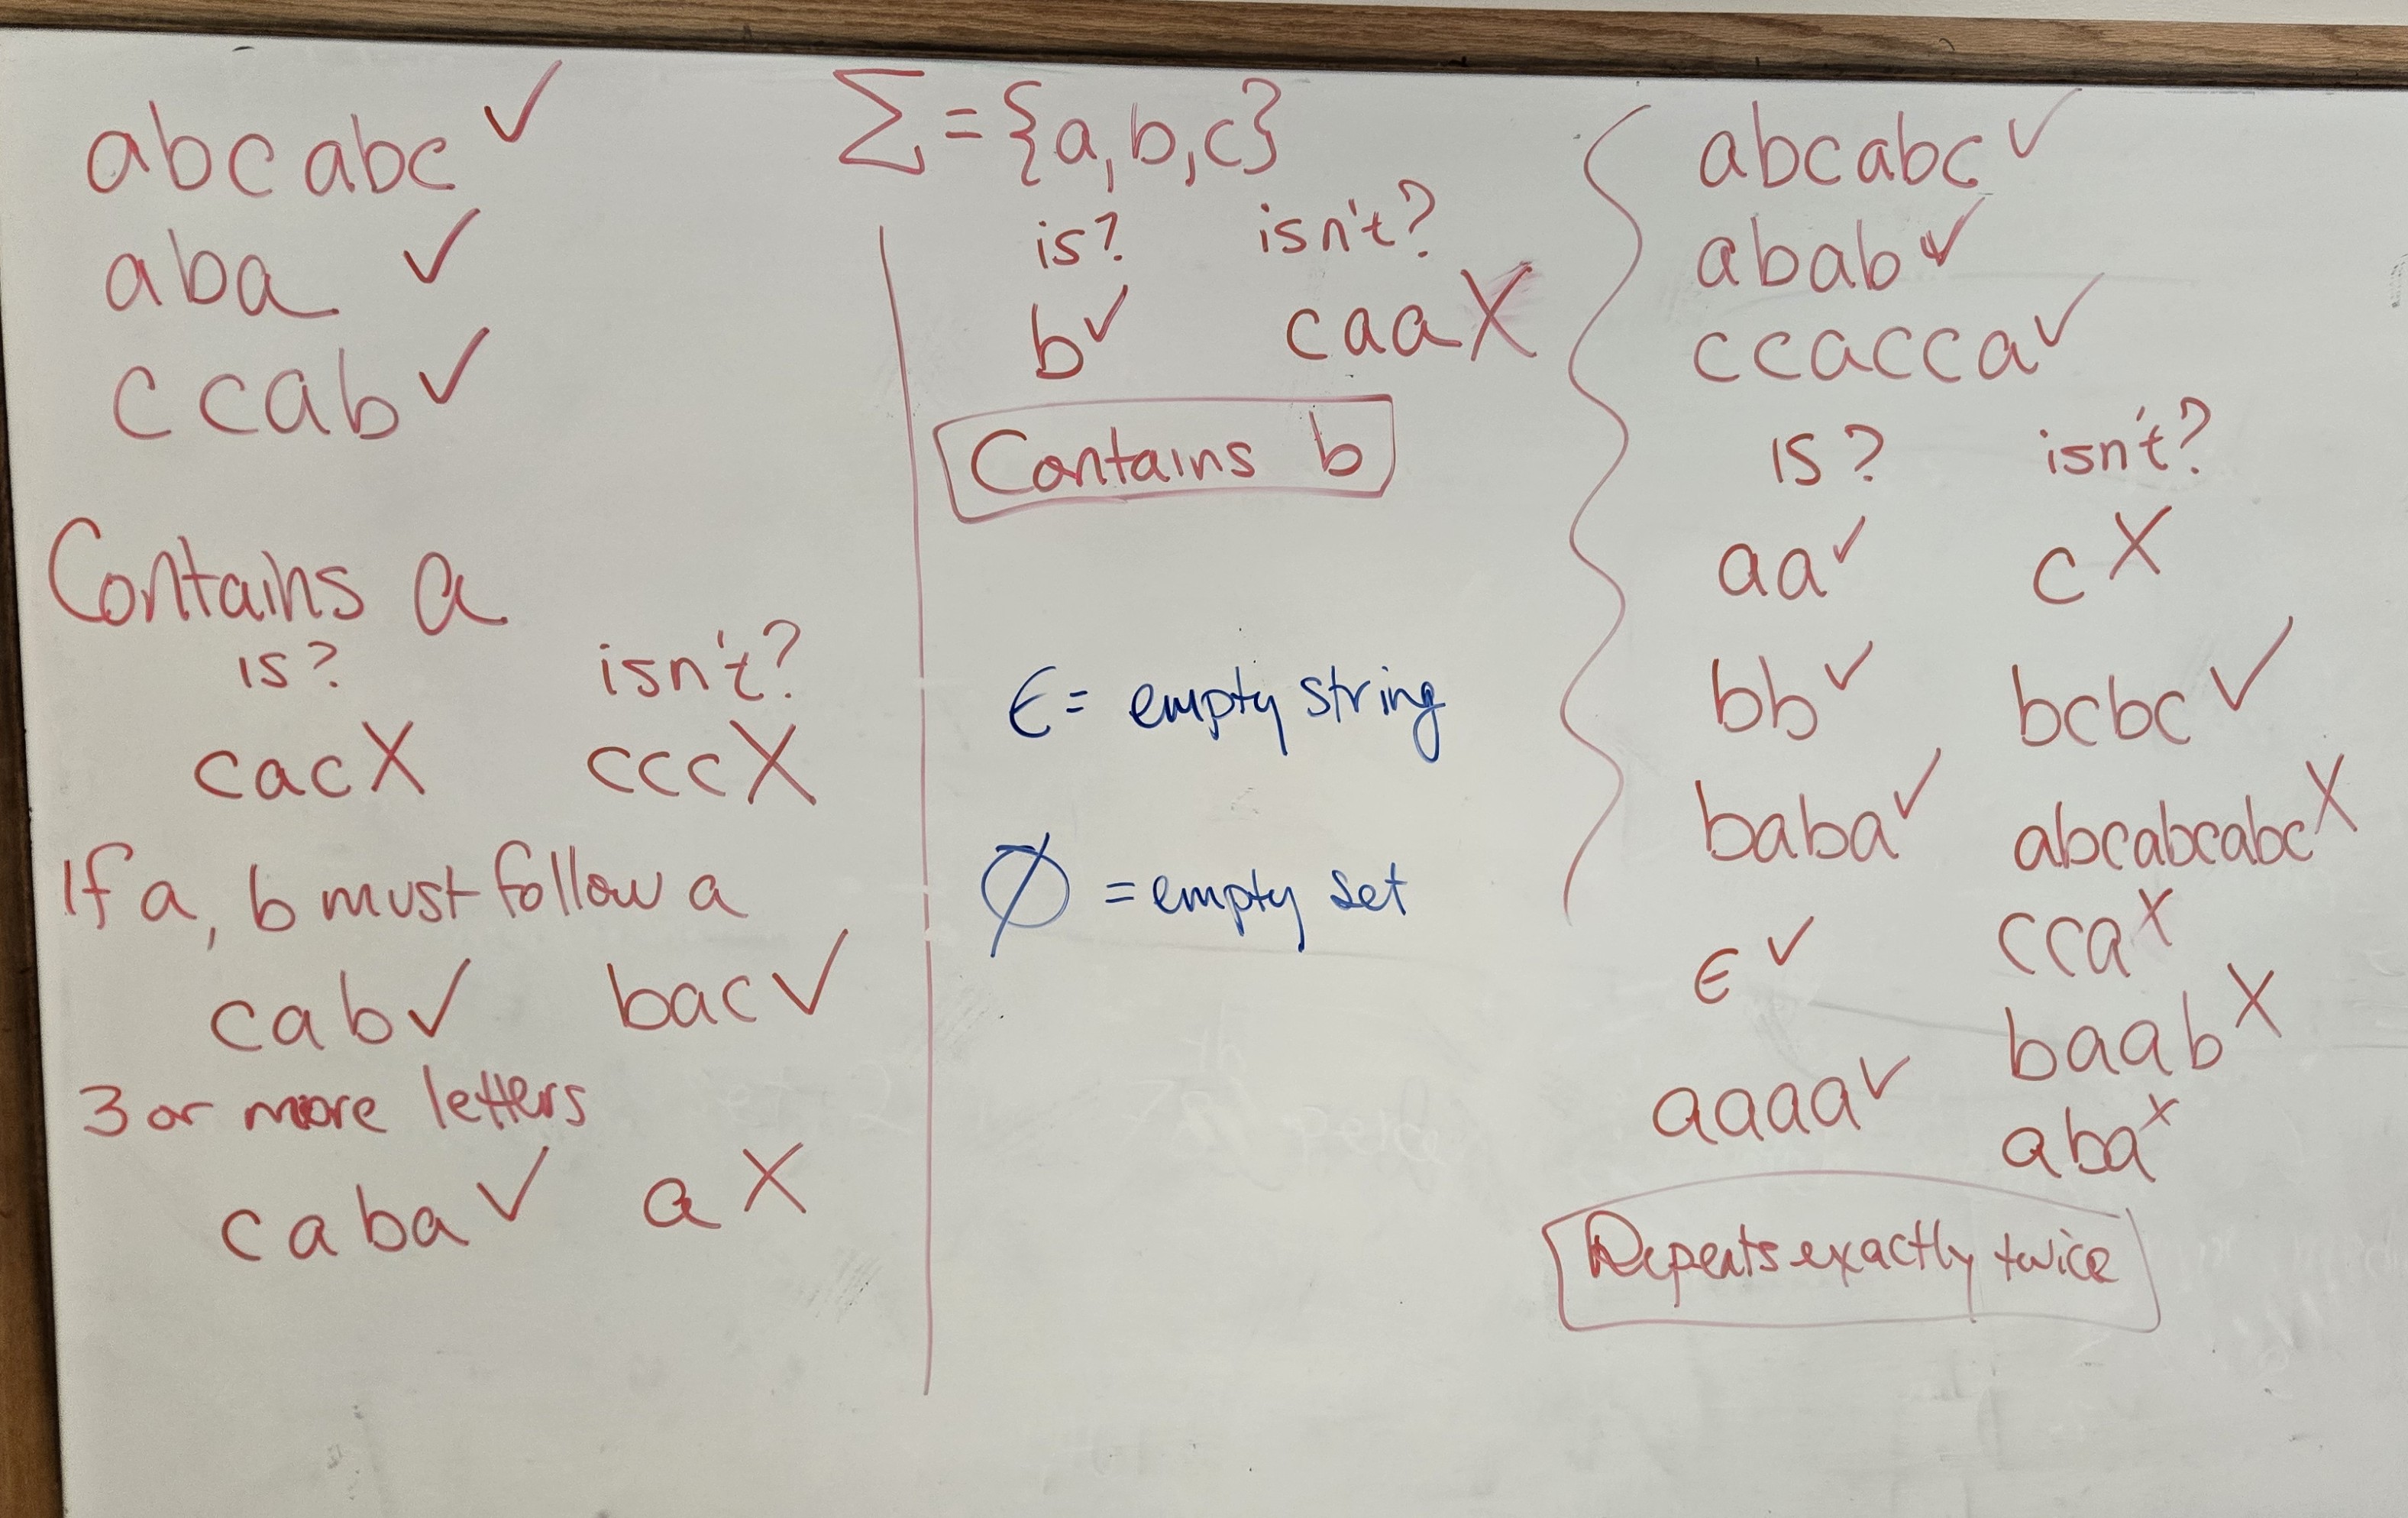 abcabc ✓
aba ✓
ccab ✓
Contains a
is? isn't?
cac X ccc X
If a, b must follow a
cab ✓ bac ✓
3 or more letters
caba ✓ a X
Σ = {a,b,c}
is? isn't?
b ✓ caa X
Contains b
ϵ = empty string
∅ = empty set
abcabc ✓
abab ✓
ccacca ✓
is? isn't?
aa ✓ c X
bb ✓ bcbc ✓
baba ✓ abcabcabc X
ϵ ✓ cca X
baab X
aaaa ✓ aba X
Repeats exactly twice